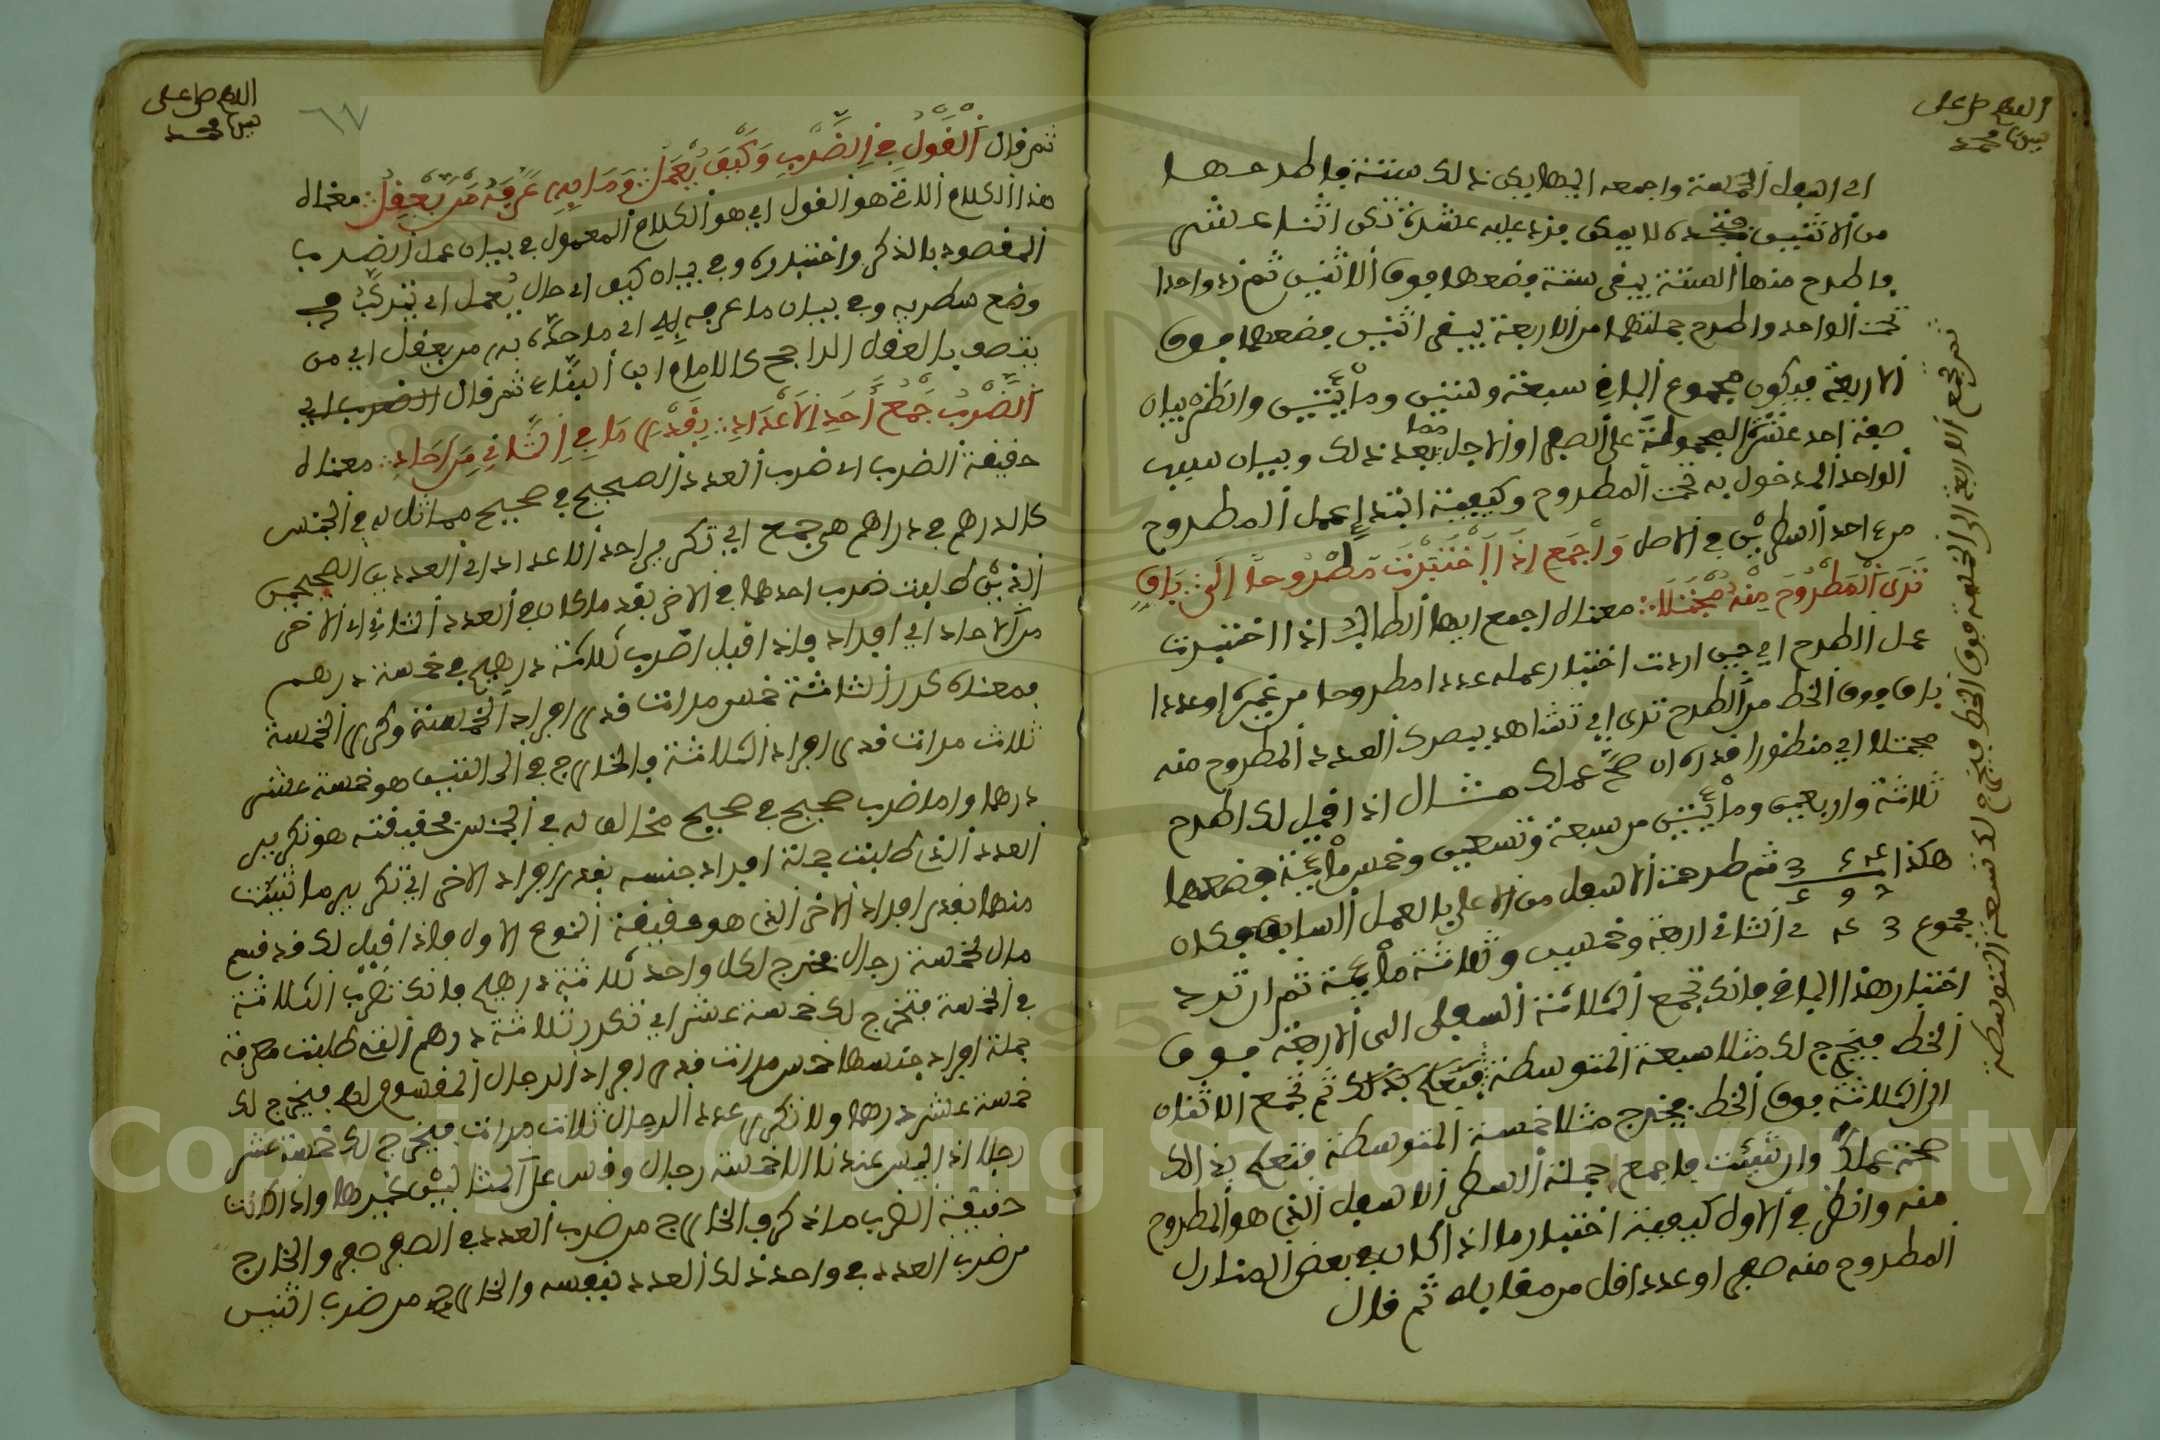 اللهم صل على
سيدنا محمد
الى اسفل الخمسة واجمعه اليها يكن ذلك ستة فاطرحها
من الاثنين فتجده لا يمكن فزد عليه عشرة تكن اثنا عشر
فاطرح منها الستة يبقى ستة فضعها فوق الاثنين ثم زد واحدا
تحت الواحد واطرح جملتهما من الاربعة يبقى اثنين فضعهما فوق
الاربعة فيكون مجموع الباقي سبعة وستين ومائتين وانظر بيان
صفة احد عشر المحمولة على الصفر او لاجل بعد ذلك وبيان سبب
الواحد المدخول به تحت المطروح وكيفية ابتداء عمل المطروح
من احد السطرين في الاصل وَاجْمَع اِذَا اخْتَبَرْتَ مَطْرُوحًا اِلَى : بَاقٍ
تَرَى الْمَطْرُوحَ مِنْهُ مُجْتَلَا : معناه اجمع ايها الطالب اذا اختبرت
عمل الطرح اي حين اردت اختبار عمله عددا مطروحا من غيره او عددا
باق فوق الخط من الطرح ترى اي تشاهد ببصرك العدد المطروح منه
مجتلا اي منظورا قدره ان صح عملك مثال اذا قيل لك اطرح
ثلاثة واربعين ومائتين من سبعة وتسعين وخمس مائة فضعهما
هكذا ثم طرحت الاسفل من الاعلى بالعمل السابق فكان
مجموع الثاني اربعة وخمسين وثلاثة مائة ثم اردت
اختبار هذا الباقي فانك تجمع الثلاثة السفلى الى الاربعة فوق
الخط فيخرج لك مثلا سبعة المتوسطة فتعلم بذلك ثم تجمع الاثنان
الى الثلاثة فوق الخط فيخرج مثلا خمسة المتوسطة فتعلم بذلك
صحة عملك وان شئت فاجمع جملة السطر الاسفل الذي هو المطروح
منه وانظر في الاول كيفية اختبار ما اذا كان في بعض المنازل
المطروح منه صفر او عدد اقل من مقابله ثم قال
ثم تجمع الاربعة الى الخمسة فوق الخط فيخرج لك تسعة المتوسطة
اللهم صل على
سيدنا محمد
٦٧
ثم قال اَلْقَوْلُ فِي الضَّرْبِ وَكَيْفَ يُعْمَلُ : وَمَا بِهِ عَرَّفَهُ مَنْ يَعْقِلُ : معناه
هذا الكلام الذي هو القول اي هو الكلام المعمول في بيان عمل الضرب
المقصود بالذكر واختباره وفي بيان كيف اي حال يُعمل اي يتركب في
وضع سطريه وفي بيان ما عرفه اي ما حدّه به من يعقل اي من
يتصف بالعقل الراجح كالامام ابن البنّاء ثم قال
اَلضَّرْبُ جَمْعُ أَحَدِ الْاَعْدَادِ : بِقَدْرِ مَا فِي الثَّانِي مِن اَحَادِ : معناه
حقيقة الضرب اي ضرب العدد الصحيح في صحيح مماثل له في الجنس
كالدرهم في دراهم هي جمع اي تكرير احد الاعداد اي العددين الصحيحين
الذين طلبت ضرب احدهما في الاخر بقدر ما كان في العدد الثاني اي الاخر
من الاحاد اي افراد فاذا قيل اضرب ثلاثة دراهم في خمسة دراهم
فمعناه كرر الثلاثة خمس مرات قدر افراد الخمسة وكرر الخمسة
ثلاث مرات قدر افراد الثلاثة والخارج في الحالتين هو خمسة عشر
درهما واما ضرب صحيح في صحيح مخالف له في الجنس فحقيقته هو تكرير
العدد الذي طلبت جملة افراد جنسه بقدر افراد الاخر اي تكرير ما شئت
منهما بقدر افراد الاخر الذي هو حقيقة النوع الاول فاذا قيل لك قد قسم
مال لخمسة رجال فخرج لكل واحد ثلاثة دراهم فانك تضرب الثلاثة
في الخمسة فتخرج لك خمسة عشر اي تكرر ثلاثة درهم التي طلبت معرفة
جملة افراد جنسها خمس مرات قدر افراد الرجال المقسوم لهم فيخرج لك
خمسة عشر درهما ولا تكرر عدد الرجال ثلاث مرات فيخرج لك خمسة عشر
رجلا اذ ليس عندنا الا خمسة رجال وقس على المثالين غيرها واذا كانت
حقيقة الضرب ما ذكر فالخارج من ضرب العدد في الصفر صفر والخارج
من ضرب العدد في واحد ذلك العدد بنفسه والخارج من ضرب اثنين
Copyright © King Saud University